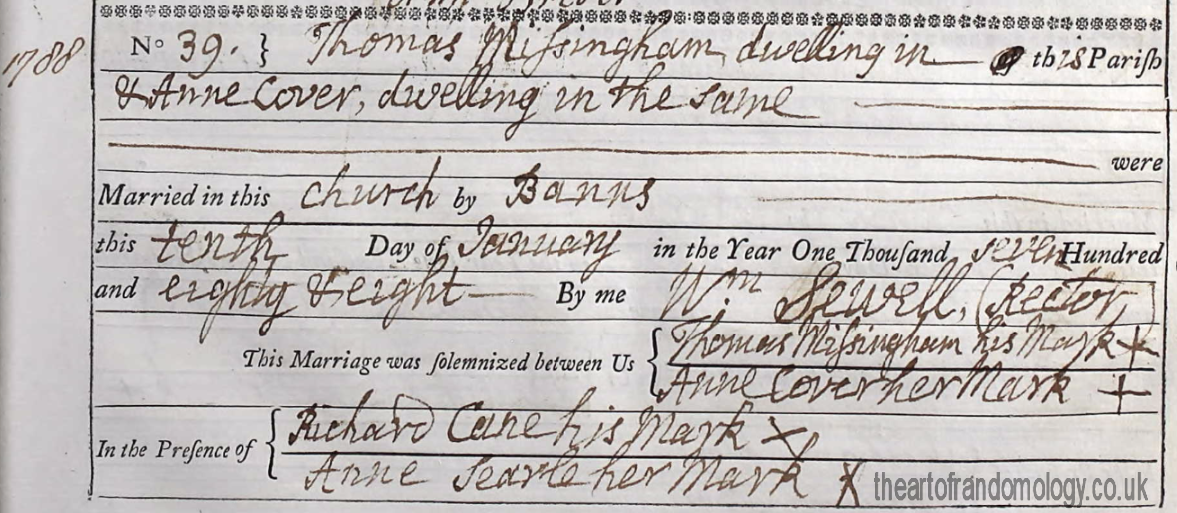 1788
No 39. } Thomas Miſsingham dwelling in this Pariſh
& Anne Cover, dwelling in the same
were
Married in this church by Banns
this tenth Day of January in the Year One Thouſand seven Hundred
and eighty & eight By me Wm Sewell, (Rector)
This Marriage was ſolemnized between Us { Thomas Miſsingham his Mark +
Anne Cover her Mark +
In the Preſence of { Richard Cane his Mark X
Anne Searle her Mark X
theartofrandomology.co.uk